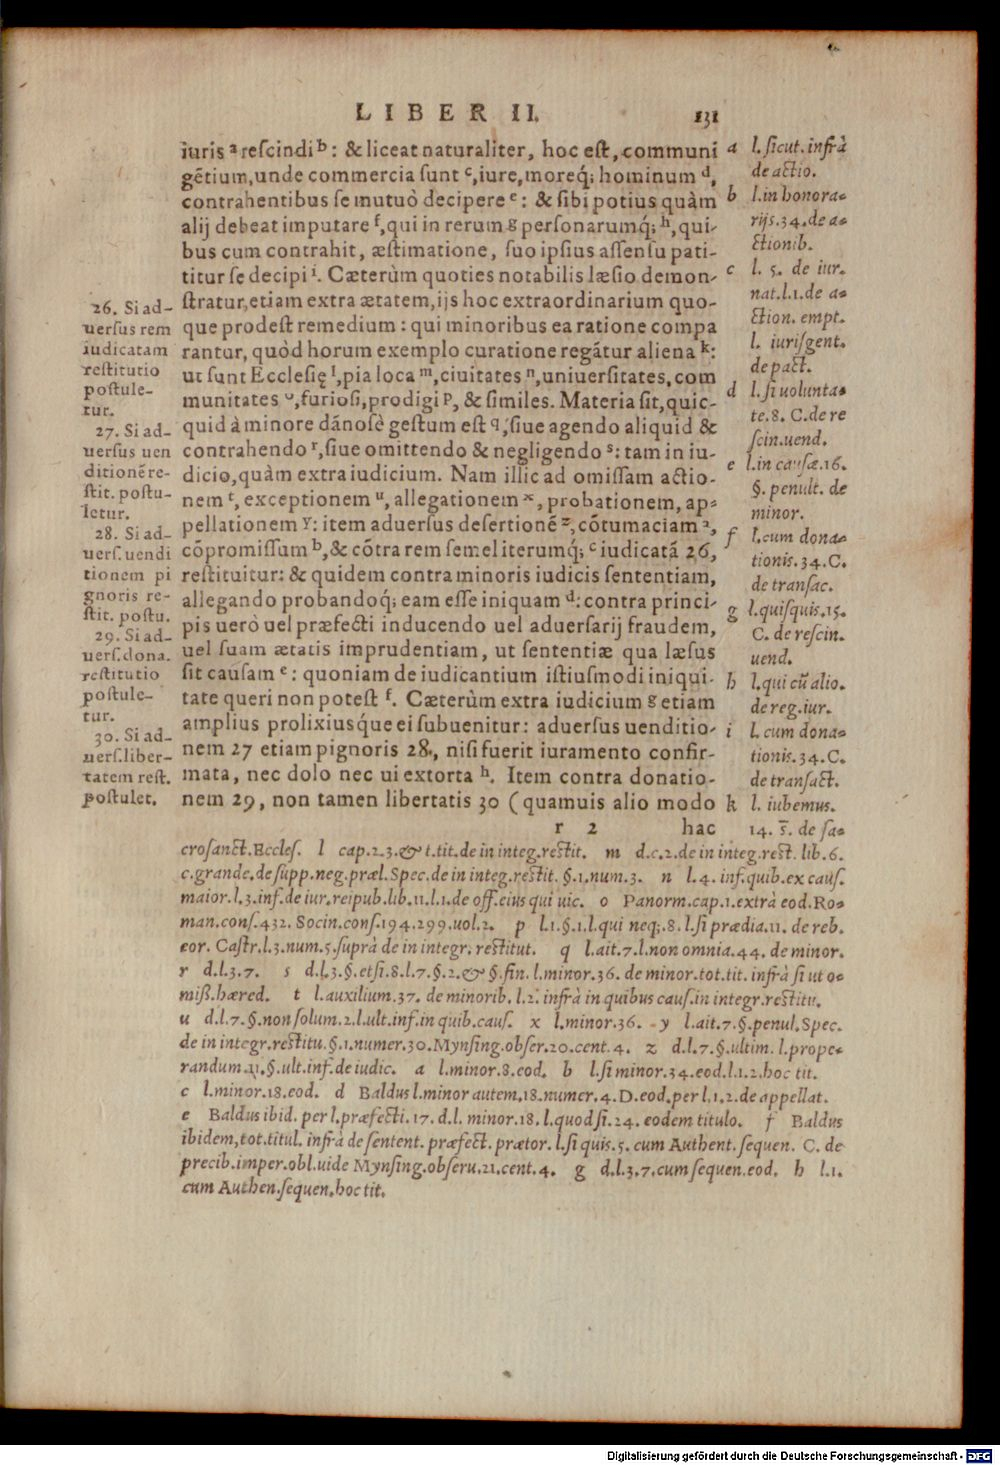 LIBER II. 131
iuris ᵃ reſcindi ᵇ: & liceat naturaliter, hoc eſt, communi
gẽtium, unde commercia ſunt ᶜ, iure, moreq́; hominum ᵈ,
contrahentibus ſe mutuò decipere ᵉ: & ſibi potius quàm
alij debeat imputare ᶠ, qui in rerum ᵍ perſonarumq́; ʰ, qui-
bus cum contrahit, æſtimatione, ſuo ipſius aſſenſu pati-
titur ſe decipi ⁱ. Cæterùm quoties notabilis læſio demon-
ſtratur, etiam extra ætatem, ijs hoc extraordinarium quo-
que prodeſt remedium: qui minoribus ea ratione compa
rantur, quòd horum exemplo curatione regãtur aliena ᵏ:
ut ſunt Eccleſię ˡ, pia loca ᵐ, ciuitates ⁿ, uniuerſitates, com
munitates ᵒ, furioſi, prodigi ᵖ, & ſimiles. Materia ſit, quic-
quid à minore dãnoſè geſtum eſt q, ſiue agendo aliquid &
contrahendo ʳ, ſiue omittendo & negligendo ˢ: tam in iu-
dicio, quàm extra iudicium. Nam illic ad omiſſam actio-
nem ᵗ, exceptionem ᵘ, allegationem ˣ, probationem, ap-
pellationem ʸ: item aduerſus deſertionẽ ᶻ, cõtumaciam ᵃ,
cõpromiſſum ᵇ, & cõtra rem ſemel iterumq́; ᶜ iudicatã 26,
reſtituitur: & quidem contra minoris iudicis ſententiam,
allegando probandoq́; eam eſſe iniquam ᵈ: contra princi-
pis uerò uel præfecti inducendo uel aduerſarij fraudem,
uel ſuam ætatis imprudentiam, ut ſententiæ qua læſus
ſit cauſam ᵉ: quoniam de iudicantium iſtiuſmodi iniqui-
tate queri non poteſt ᶠ. Cæterùm extra iudicium ᵍ etiam
amplius prolixiusque ei ſubuenitur: aduerſus uenditio-
nem 27 etiam pignoris 28, niſi fuerit iuramento confir-
mata, nec dolo nec ui extorta ʰ. Item contra donatio-
nem 29, non tamen libertatis 30 (quamuis alio modo
r 2 hac
26. Si ad-
uerſus rem
iudicatam
reſtitutio
poſtule-
tur.
27. Si ad-
uerſus uen
ditionẽ re-
ſtit. poſtu-
letur.
28. Si ad-
uerſ. uendi
tionem pi
gnoris re-
ſtit. poſtu.
29. Si ad-
uerſ. dona.
reſtitutio
poſtule-
tur.
30. Si ad-
uerſ. liber-
tatem reſt.
poſtulet.
a l. ſicut. infrà
de actio.
b l. in honora-
rijs. 34. de a-
ctionib.
c l. 5. de iur.
nat. l. 1. de a-
ction. empt.
l. iuriſgent.
de pact.
d l. ſi uolunta-
te. 8. C. de re
ſcin. uend.
e l. in cauſæ. 16.
§. penult. de
minor.
f l. cum dona-
tionis. 34. C.
de tranſac.
g l. quiſquis. 15.
C. de reſcin.
uend.
h l. qui cũ alio.
de reg. iur.
i l. cum dona-
tionis. 34. C.
de tranſact.
k l. iubemus.
14. s̄. de ſa-
croſanct. Eccleſ. l cap. 2. 3. & t. tit. de in integ. reſtit. m d. c. 2. de in integ. reſt. lib. 6.
c. grande. de ſupp. neg. præl. Spec. de in integ. reſtit. §. 1. num. 3. n l. 4. inf. quib. ex cauſ.
maior. l. 3. inf. de iur. reipub. lib. 11. l. 1. de off. eius qui uic. o Panorm. cap. 1. extrà eod. Ro-
man. conſ. 432. Socin. conſ. 194. 299. uol. 2. p l. 1. §. 1. l. qui neq;. 8. l. ſi prædia. 11. de reb.
eor. Caſtr. l. 3. num. 5. ſuprà de in integr. reſtitut. q l. ait. 7. l. non omnia. 44. de minor.
r d. l. 3. 7. s d. l. 3. §. etſi. 8. l. 7. §. 2. & §. fin. l. minor. 36. de minor. tot. tit. infrà ſi ut o-
miß. hæred. t l. auxilium. 37. de minorib. l. 2. infrà in quibus cauſ. in integr. reſtitu.
u d. l. 7. §. non ſolum. 2. l. ult. inf. in quib. cauſ. x l. minor. 36. y l. ait. 7. §. penul. Spec.
de in integr. reſtitu. §. 1. numer. 30. Mynſing. obſer. 20. cent. 4. z d. l. 7. §. ultim. l. prope-
randum. 13. §. ult. inf. de iudic. a l. minor. 8. eod. b l. ſi minor. 34. eod. l. 1. 2. hoc tit.
c l. minor. 18. eod. d Baldus l. minor autem. 18. numer. 4. D. eod. per l. 1. 2. de appellat.
e Baldus ibid. per l. præfecti. 17. d. l. minor. 18. l. quod ſi. 24. eodem titulo. f Baldus
ibidem, tot. titul. infrà de ſentent. præfect. prætor. l. ſi quis. 5. cum Authent. ſequen. C. de
precib. imper. obl. uide Mynſing. obſeru. 21. cent. 4. g d. l. 3. 7. cum ſequen. eod. h l. 1.
cum Authen. ſequen. hoc tit.
Digitalisierung gefördert durch die Deutsche Forschungsgemeinschaft - DFG